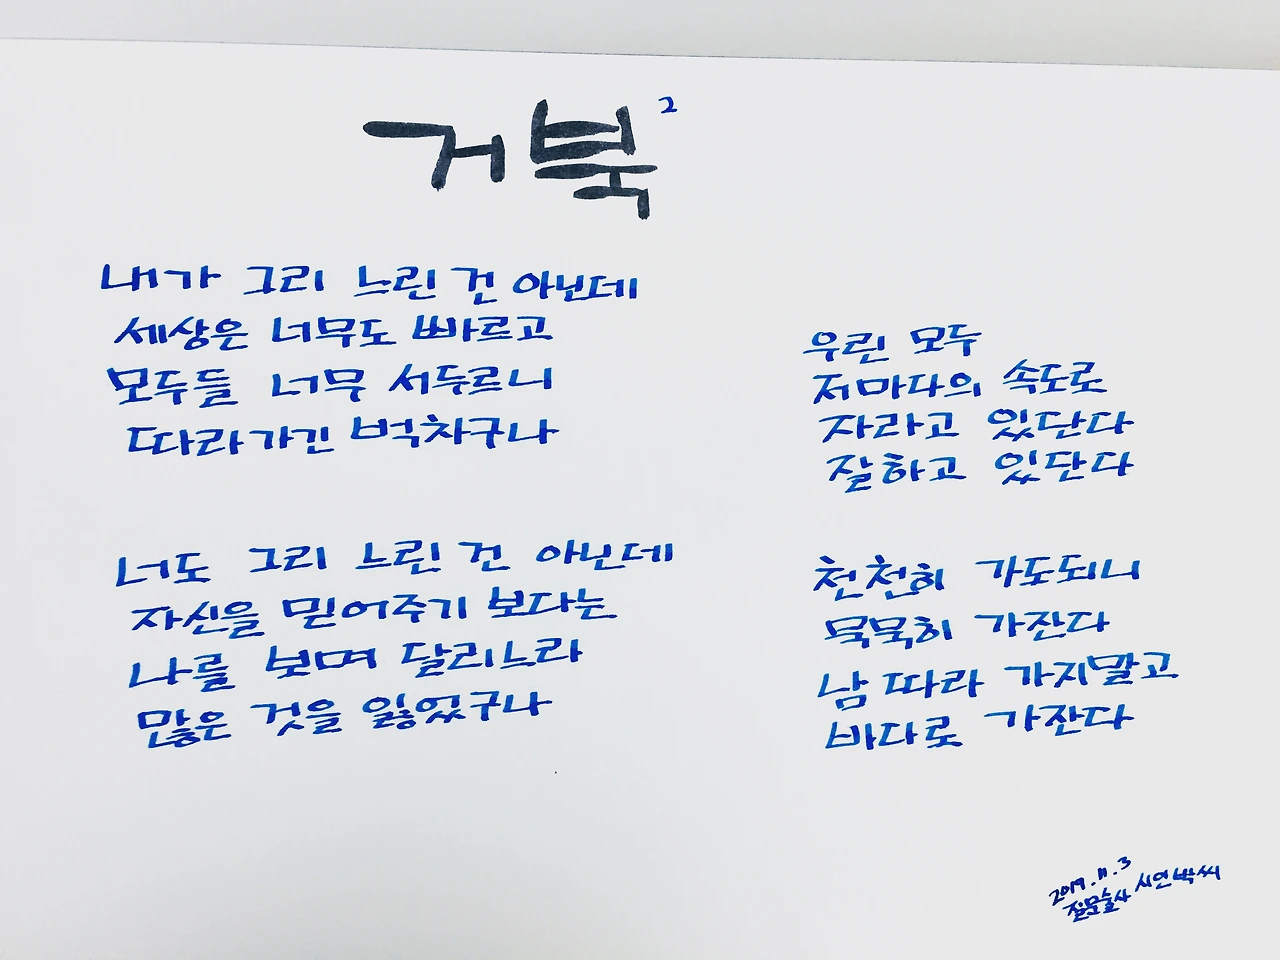 거북 2
내가 그리 느린 건 아닌데
세상은 너무도 빠르고
모두들 너무 서두르니
따라가긴 벅차구나
너도 그리 느린 건 아닌데
자신을 믿어주기 보다는
나를 보며 달리느라
많은 것을 잃었구나
우린 모두
저마다의 속도로
자라고 있단다
잘하고 있단다
천천히 가도되니
묵묵히 가잔다
남 따라 가지말고
바다로 가잔다
2019.11.3
질문술사 시인박씨